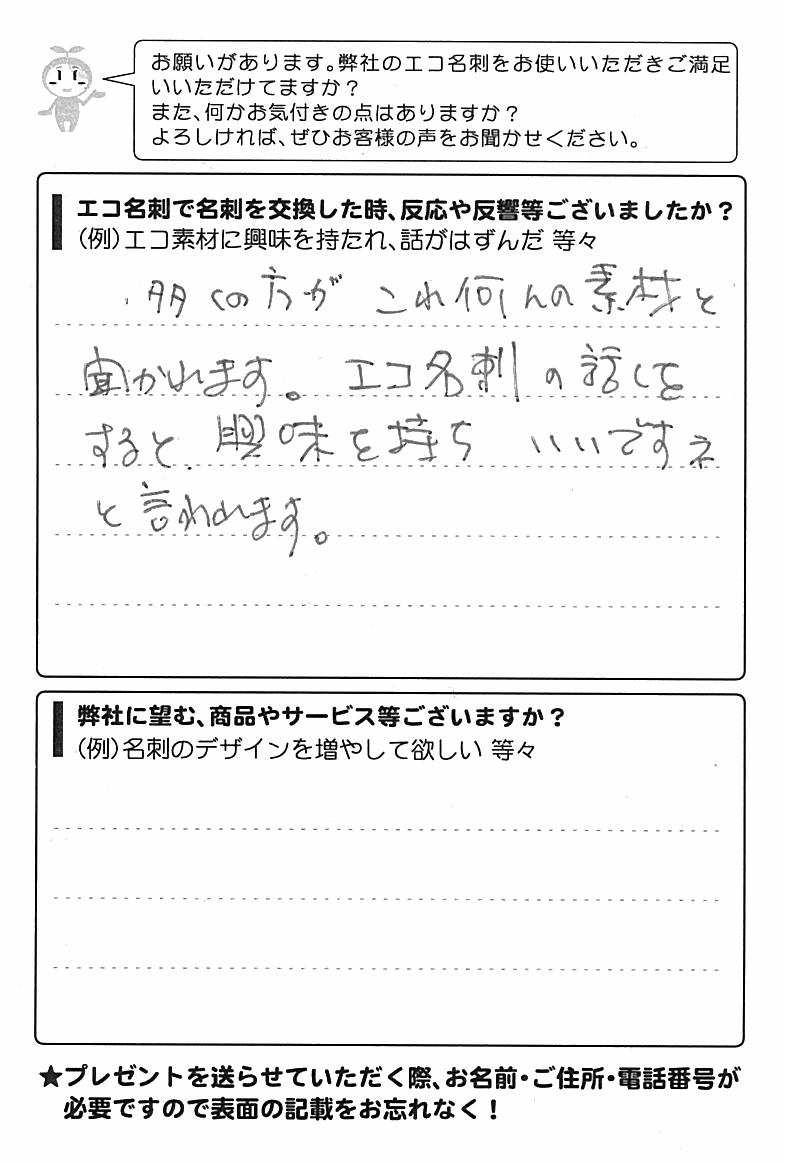 お願いがあります。弊社のエコ名刺をお使いいただきご満足
いいただけてますか？
また、何かお気付きの点はありますか？
よろしければ、ぜひお客様の声をお聞かせください。
エコ名刺で名刺を交換した時、反応や反響等ございましたか？
（例）エコ素材に興味を持たれ、話がはずんだ 等々
多くの方が これ何んの素材と
聞かれます。エコ名刺の話しを
すると、興味を持ち いいですネ
と言われます。
弊社に望む、商品やサービス等ございますか？
（例）名刺のデザインを増やして欲しい 等々
★プレゼントを送らせていただく際、お名前・ご住所・電話番号が
必要ですので表面の記載をお忘れなく！